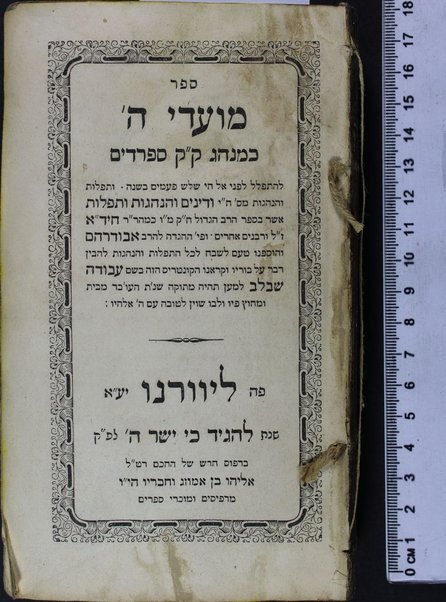 ספר
מועדי ה'
כמנהג ק"ק ספרדים
להתפלל לפני אל חי שלש פעמים בשנה · ותפלות
והנהגות מס' ח"י ודינים והנהגות ותפלות
אשר בספר הרב הגדול ח"ק מ"ו כמהר"ר חיד"א
ז"ל ורבנים אחרים · ופי' ההגדה להרב אבודרהם
והוספנו טעם לשבח לכל התפלות והנהגות להבין
דבר על בוריו וקראנו הקונטריס הזה בשם עבודה
שבלב למען תהיה מתוקה שנ"ת העו'בד מבית
ומחוץ פיו ולבו שוין לטובה עם ה' אלהיו :
פה ליוורנו יע"א
שנת להגיד כי ישר ה' לפ"ק
בדפוס חדש של החכם דט"ל
אליהו בן אמוזג וחביריו הי"ו
מדפיסים ומוכרי ספרים
0 CM 1 2 3 4 5 6 7 8 9 10 11 12 13 14 15 16 17 18